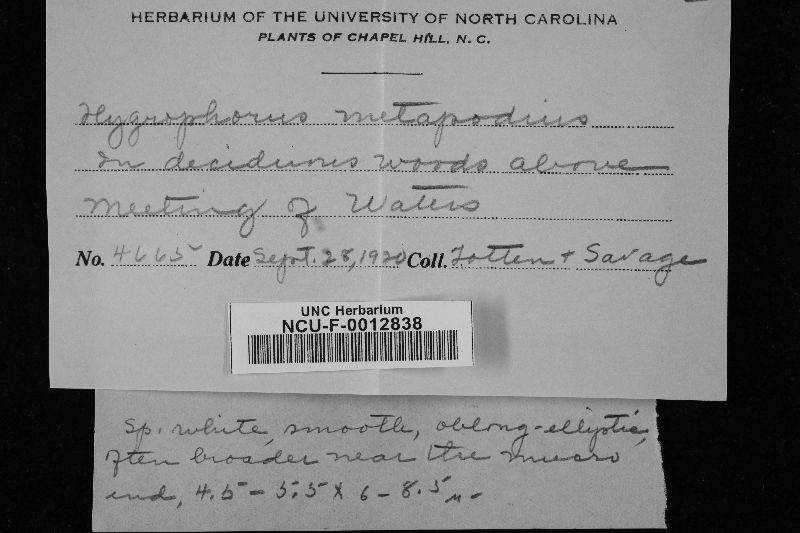 HERBARIUM OF THE UNIVERSITY OF NORTH CAROLINA
PLANTS OF CHAPEL HILL, N. C.
Hygrophorus metapodius
In deciduous woods above
Meeting of Waters
No. 4665 Date Sept. 28, 1920 Coll. Totten + Savage
UNC Herbarium
NCU-F-0012838
Sp. white, smooth, oblong-elliptic,
often broader near the mucro
end, 4.5 - 5.5 x 6 - 8.5 µ.